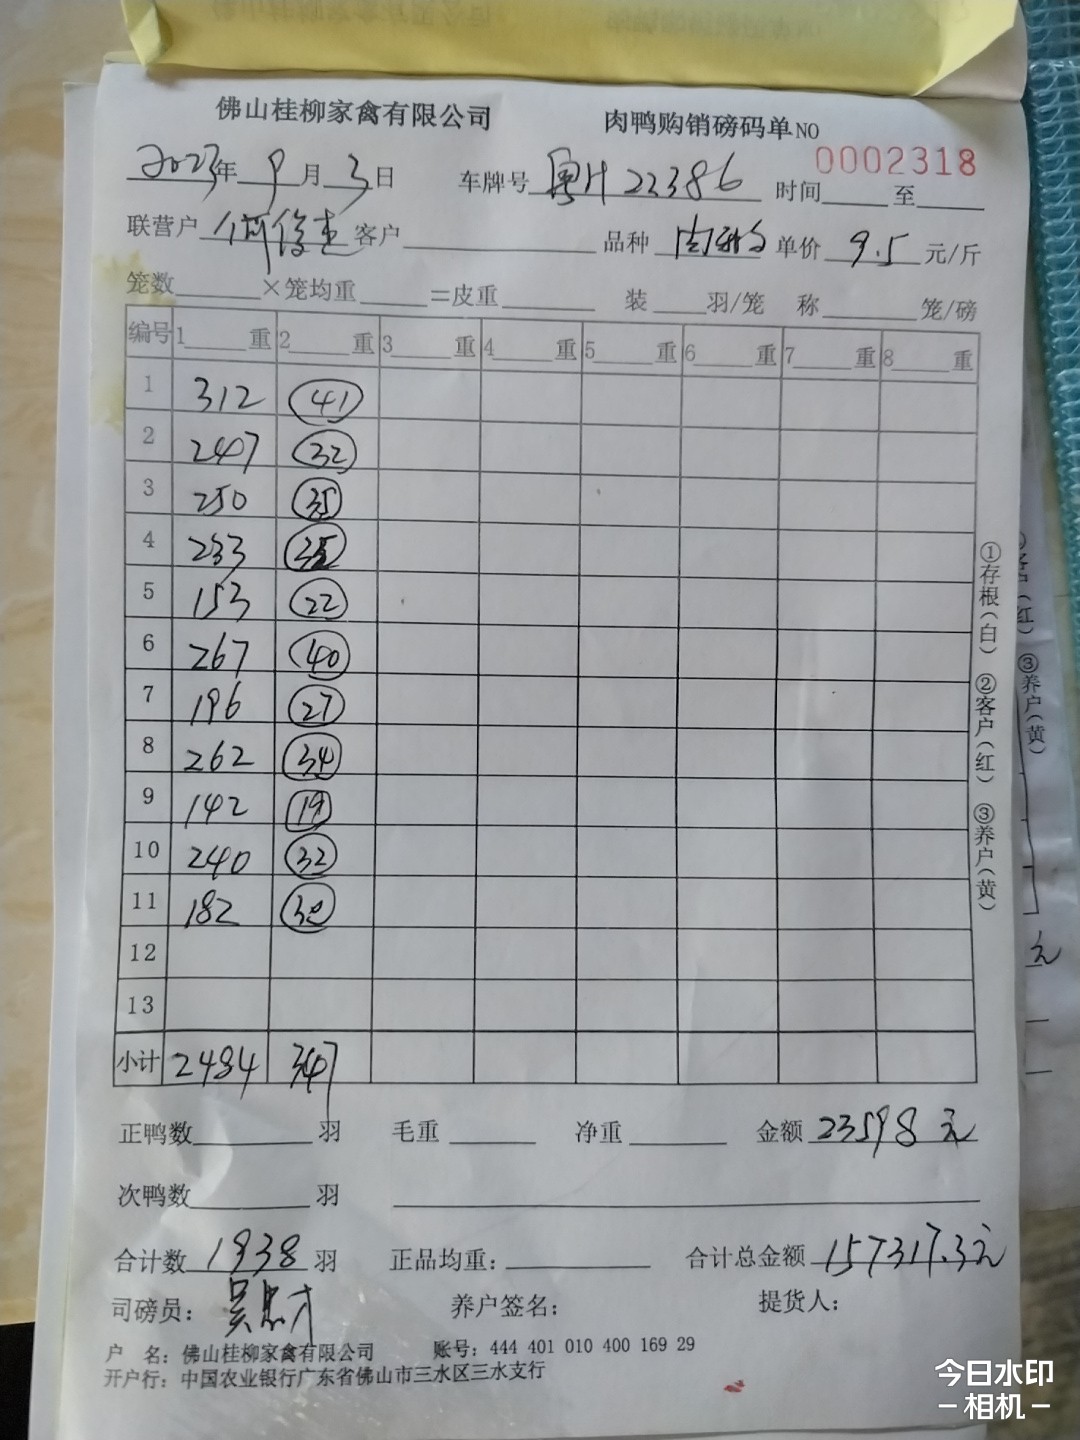 佛山桂柳家禽有限公司 肉鸭购销磅码单NO 0002318
2023年 9月 3日 车牌号 粤H 22386 时间 至
联营户 何俊杰 客户 品种 肉鸭 单价 9.5 元/斤
笼数 ×笼均重 =皮重 装 羽/笼 称 笼/磅
编号 1 重 2 重 3 重 4 重 5 重 6 重 7 重 8 重
1 312 41
2 247 32
3 250 35
4 233 35
5 153 22
6 267 40
7 196 27
8 262 34
9 142 19
10 240 32
11 182 30
12
13
小计 2484 347
正鸭数 羽 毛重 净重 金额 23598 元
次鸭数 羽
合计数 1938 羽 正品均重： 合计总金额 157317.3元
司磅员： 吴 才 养户签名： 提货人：
户 名：佛山桂柳家禽有限公司 账号：444 401 010 400 169 29
开户行：中国农业银行广东省佛山市三水区三水支行
①存根（白） ②客户（红） ③养户（黄）
（红） ③养户（黄）
元
今日水印
-相机-